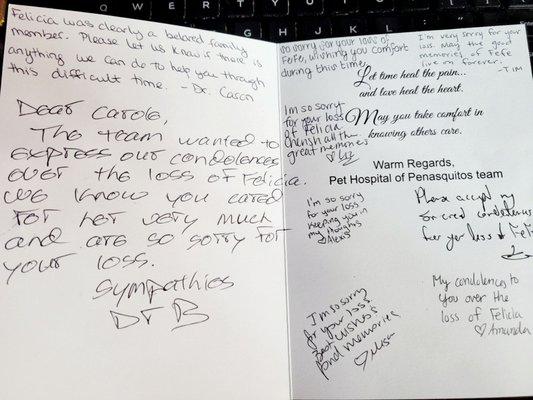 Felicia was clearly a beloved family
member. Please let us know if there is
anything we can do to help you through
this difficult time. - Dr. Caron
Dear Carole,
The team wanted to
express our condolences
over the loss of Felicia.
We know you cared
for her very much
and are so sorry for
your loss.
Sympathies
Dr B
So sorry for your loss of
FeFe, wishing you comfort
during this time
I'm very sorry for your
loss. May the good
memories of FeFe
live on forever.
-Tim
Let time heal the pain...
and love heal the heart.
May you take comfort in
knowing others care.
I'm so sorry
for your loss
of Felicia
cherish all the
great memories
♡ Liz
Warm Regards,
Pet Hospital of Penasquitos team
I'm so sorry
for your loss
Keeping you in
my thoughts
Alexis
Please accept my
sincerest condolences
for your loss of
My condolences to
you over the
loss of Felicia
♡ Amanda
I'm so sorry
for your loss
Best wishes &
fond memories